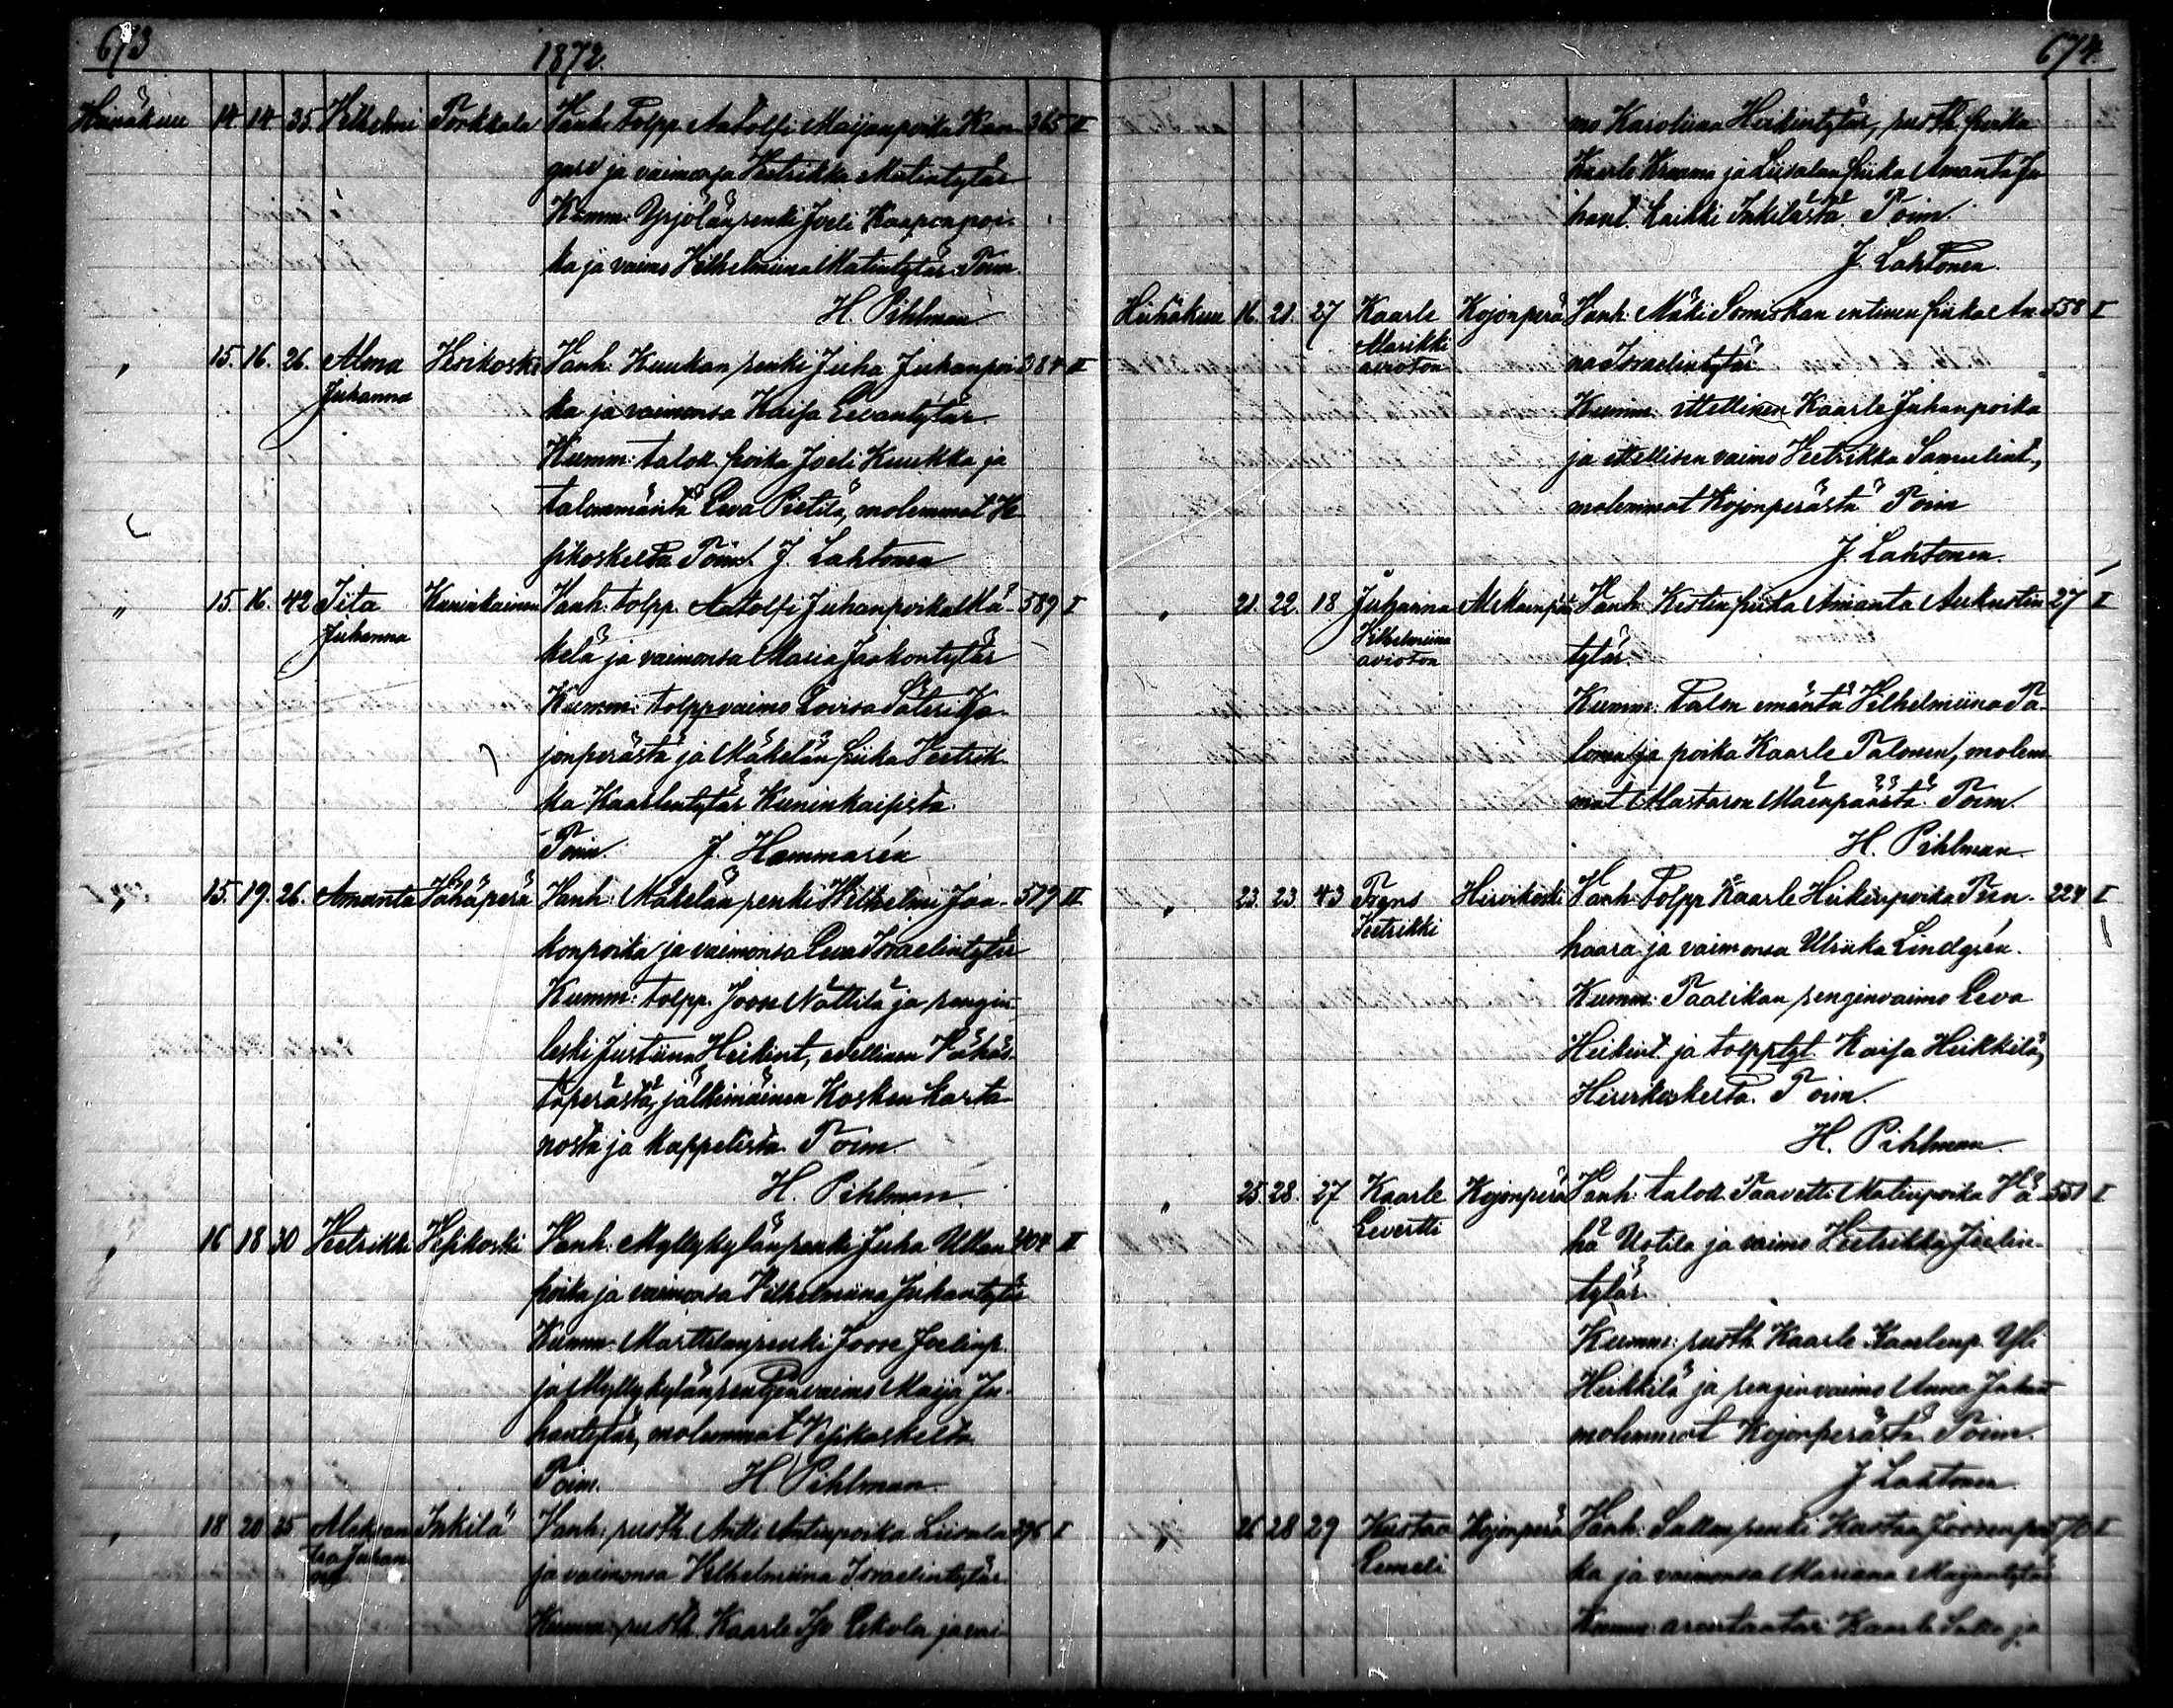 673
1872.
Heinäkuu 14. 14. 35. Vilhelmi Torkkala Vanh: Tolpp. Aatolfi Maijanpoika Kan- 365 II
gard ja vaimonsa Heetrikka Matintytär
Kumm: Yrjölän renki Joeli Kaapanpoi-
ka ja vaimo Vilhelmiina Matintytär. Toim.
H. Pihlman
" 15. 16. 26. Alma Juhanna Vesikoski Vanh: Kuukan renki Juha Juhanpoi- 384 II
ka ja vaimonsa Kaisa Eevantytär.
Kumm: talok. poika Joeli Kuukka ja
talonemäntä Eeva Pietilä, molemmat Ve-
sikoskelta Toim. J. Lahtonen
" 15. 16. 42 Iita Juhanna Kuninkainen Vanh: tolpp. Aatolfi Juhanpoika Mä- 589 I
kelä ja vaimonsa Maria Jaakontytär
Kumm: tolppvaimo Lovisa Säteri Ko-
jonperästä ja Mäkelän piika Heetrik-
ka Kaarlentytär Kuninkaisista.
Toim. J. Hammarén
" 15. 19. 26. Amanta Vähäperä Vanh: Mäkelän renki Vilhelmi Jaa- 579 II
konpoika ja vaimonsa Eeva Israelintytär
Kumm: tolpp. Joose Nättilä ja rengin-
leski Justiina Heikint, edellinen Vähäs-
täperästä, jälkimäinen Kosken karta-
nosta ja kappelista. Toim.
H. Pihlman.
" 16 18 30 Heetrikki Vesikoski Vanh: Myllykylän renki Juha Ullan- 404 II
poika ja vaimonsa Vilhelmiina Juhantytär
Kumm: Marttilan renki Joose Joelinp.
ja Myllykylän renginvaimo Maija Ju-
hantytär, molemmat Vesikoskelta
Toim. H. Pihlman
" 18 20 25 Aleksantra Juhanna Inkilä Vanh: rusth. Antti Antinpoika Liisala 396 I
ja vaimonsa Vilhelmiina Israelintytär.
Kumm: rusth. Kaarle Iso Eskola ja vai-
674.
mo Karoliina Heikintytär, rusth. poika
Kaarle Krouvi ja Liisalan piika Amanta Ju-
hant. kaikki Inkilästä. Toim.
J. Lahtonen.
Heinäkuu 16. 21. 27 Kaarle Marikki avioton Kojonperä Vanh: Mäki Somiskan entinen piika An- 558 I
na Israelintytär
Kumm: itsellinen Kaarle Juhanpoika
ja itsellisen vaimo Heetrikka Samulint.,
molemmat Kojonperästä. Toim
J. Lahtonen.
" 21. 22. 18 Juhanna Vilhelmiina avioton Vanh: Kestin piika Amanta Aukustin- 27 I
tytär.
Kumm: Talon emäntä Vilhelmiina Ta-
lonen ja poika Kaarle Talonen, molem-
mat Maskaron Mäenpäästä. Toim.
H. Pihlman.
" 23. 23. 43 Frans Heetrikki Hirvikoski Vanh: Tolpp. Kaarle Heikinpoika Tun- 224 I
haara ja vaimonsa Ulriika Lindgrén.
Kumm: Taarikan renginvaimo Eeva
Heikint. ja tolpptyt. Kaisa Heikkilä,
Hirvikoskelta. Toim.
H. Pihlman.
" 25. 28. 27 Kaarle Eevertti Kojonperä Vanh: talok. Taavetti Matinpoika Vä- 551 I
hä Uotila ja vaimo Heetrikka Joelin-
tytär.
Kumm: rusth. Kaarle Kaarlenp. Yli
Heikkilä ja renginvaimo Anna Juhant.
molemmat Kojonperästä. Toim.
J. Lahtonen
" 26 28 29 Kustaa Eemeli Kojonperä Vanh: Sallin renki Kustaa Joosenpoi- 570 I
ka ja vaimonsa Mariana Maijantytär
Kumm: arentaatari Kaarle Salli ja